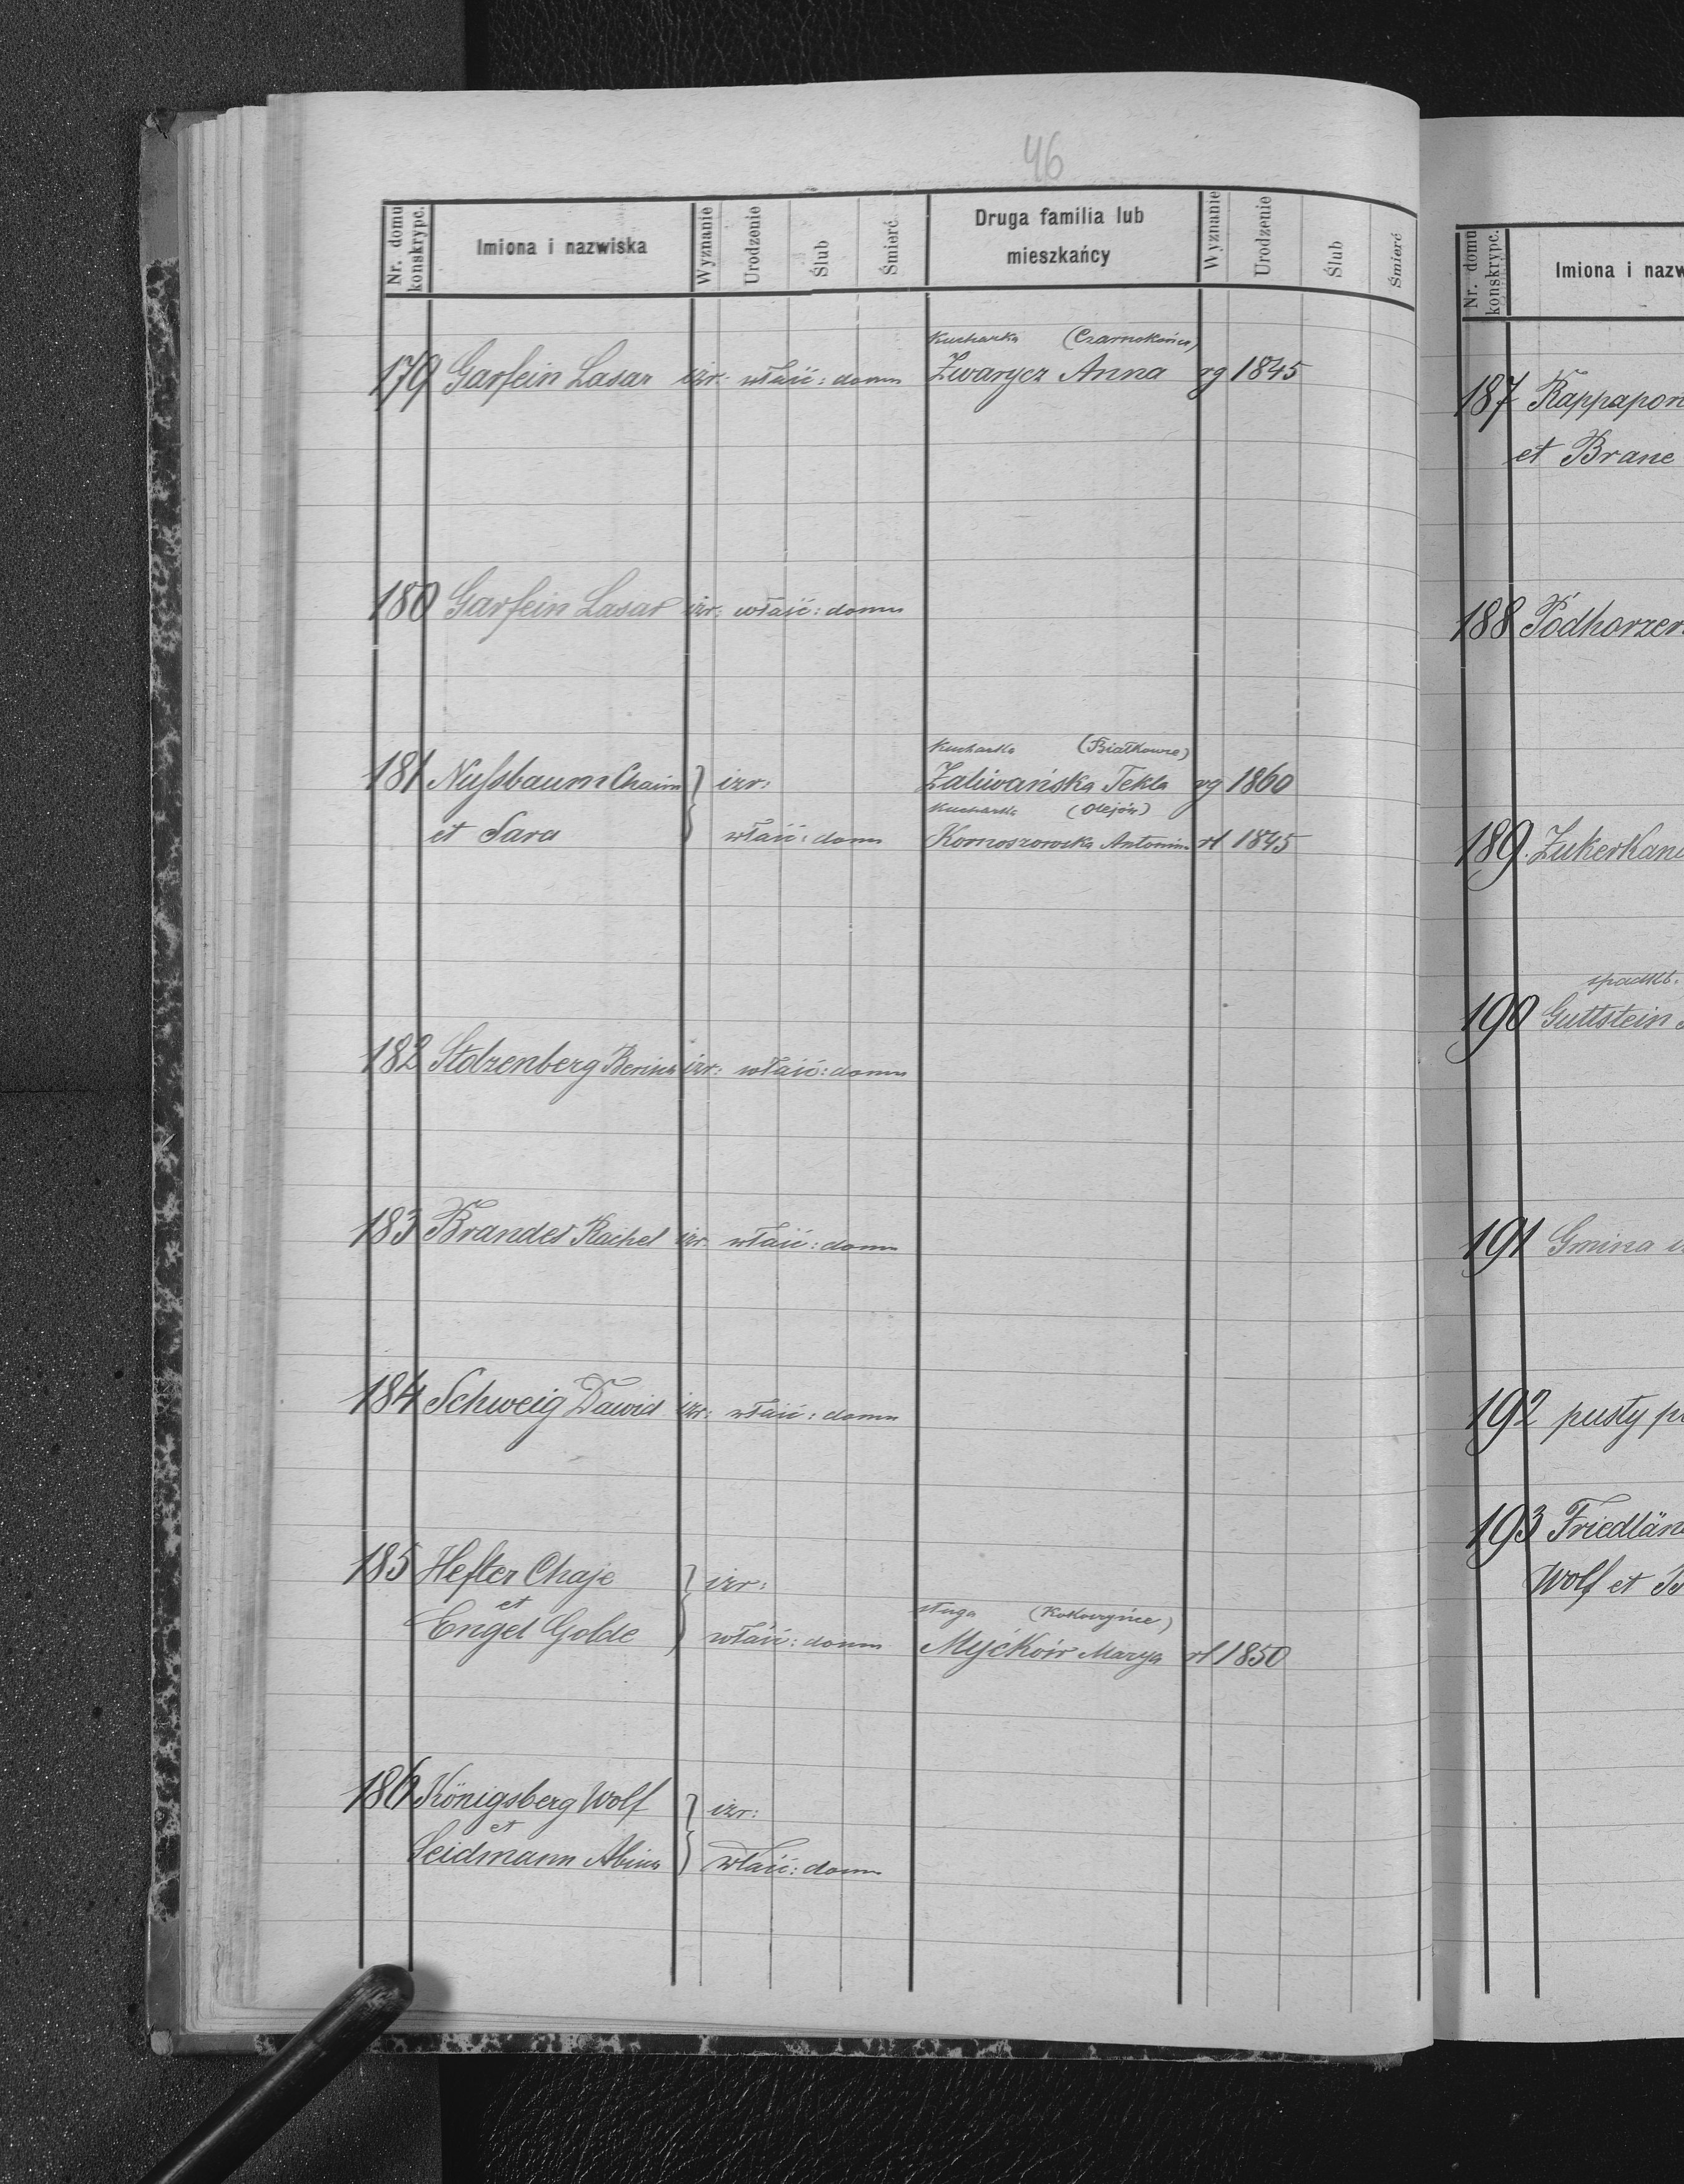 46
Nr. domu konskrypc.
Imiona i nazwiska
Wyznanie
Urodzenie
Ślub
Śmierć
Druga familia lub mieszkańcy
Wyznanie
Urodzenie
Ślub
Śmierć
Kucharka (Czarnokońce)
179 Garfein Lasar izr: właść: domu Zwarycz Anna rg 1845
180 Garfein Lasar izr: właść: domu
Kucharka (Białkowce)
181 Nussbaum Chaim izr: Zaliwańska Tekla rg 1860
Kucharka (Olejów)
et Sara właść: domu Komoszowska Antonina rł 1845
182 Stolzenberg izr: właść: domu
183 Brandes Rachel izr: właść: domu
184 Schweig Dawid izr: właść: domu
185 Hefter Chaje izr:
et
sługa
Engel Golde właść: domu Myćków Marya rł 1850
186 Königsberg Wolf izr:
et
Seidmann właść: domu
Nr. domu konskrypc.
Imiona i nazw
187 Rappapor
et Brane
188 Podhorzer
189. Zukerkan
spadkb.
190 Guttstein
191 Gmina
192 pusty
193 Friedlän
Wolf et